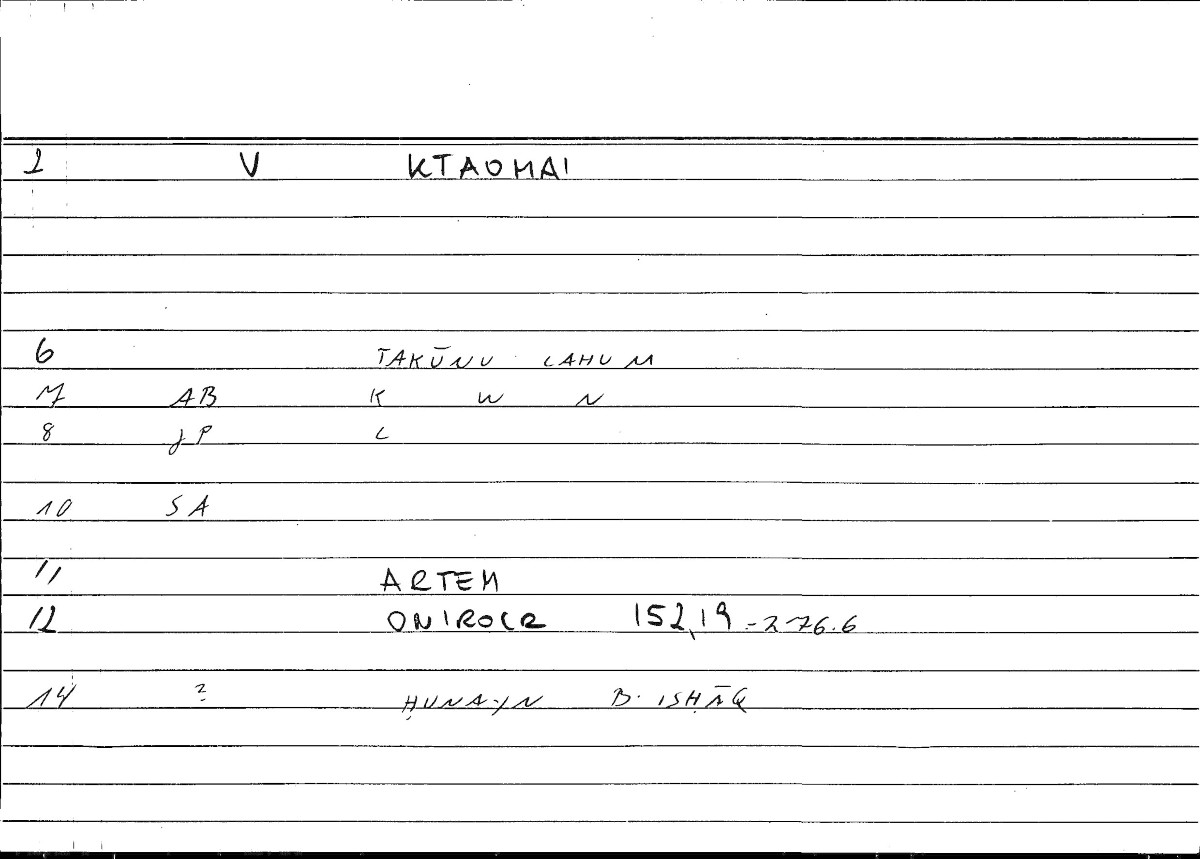 2 V KTAOMAI
6 TAKŪNU LAHUM
7 AB K W N
8 JP L
10 SA
11 ARTEM
12 ONIROCR 152,19 - 276.6
14 ? ḤUNAYN B. ISḤĀQ